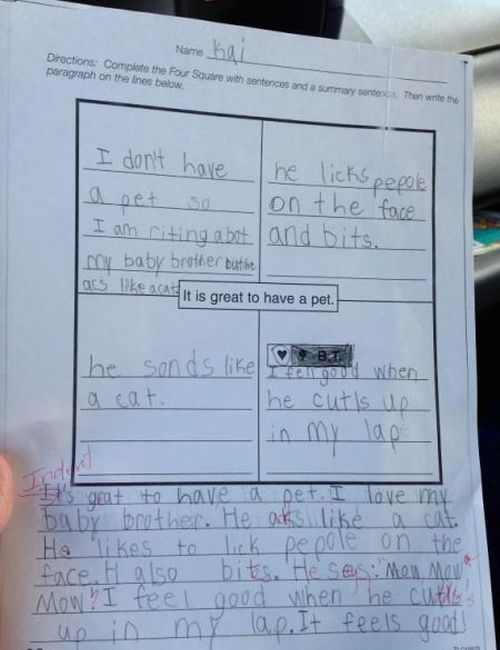 Name Kai
Directions: Complete the Four Square with sentences and a summary sentence. Then write the
paragraph on the lines below.
I don't have
a pet so
I am riting abot
my baby brother but he
acs like a cat
he licks pepole
on the face
and bits.
It is great to have a pet.
he sonds like
a cat.
B.T.
I fell good when
he cutls up
in my lap
Indent
It's great to have a pet. I love my
baby brother. He acts like a cat.
He likes to lick pepole on the
face. H also bites. He says: "Mow Mow
Mow!" I feel good when he cutls
up in my lap. It feels good!